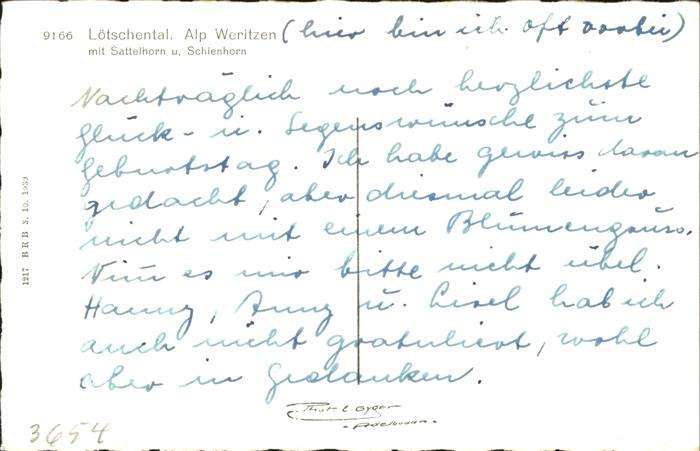 9166 Lötschental. Alp Weritzen (hier bin ich oft vorbei)
mit Sattelhorn u. Schienhorn
Nachträglich noch herzlichste
Glück- u. Segenswünsche zum
Geburtstag. Ich habe gewiss daran
gedacht, aber diesmal leider
nicht mit einem Blumengruss.
Nim es mir bitte nicht übel.
Hanny, Anny u. Lisel hab ich
auch nicht gratuliert, wohl
aber in Gedanken.
1217 BRB 3. 10. 1939
Phot. Gyger
Adelboden.
3654